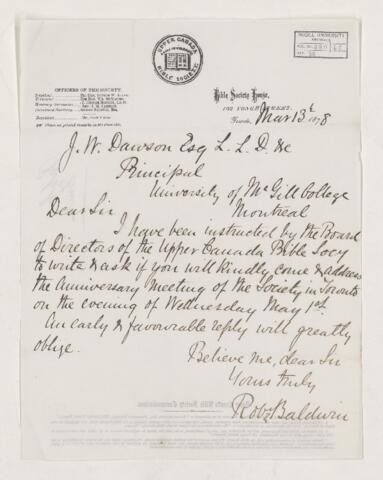 UPPER CANADA
BIBLE SOCIETY
McGILL UNIVERSITY
ARCHIVES
OFFICERS OF THE SOCIETY.
Bible Society House,
102 YONGE STREET,
Toronto, Mar 13t 1878
J. W. Dawson Esq L. L. D. &c
Principal
University of McGill College
Montreal
Dear Sir
I have been instructed by the Board
of Directors of the Upper Canada Bible Socy
to write & ask if you will kindly come & address
the Anniversary Meeting of the Society in Toronto
on the evening of Wednesday May 1st.
An early & favourable reply will greatly
oblige.
Believe me, dear Sir
Yours truly
Robt Baldwin